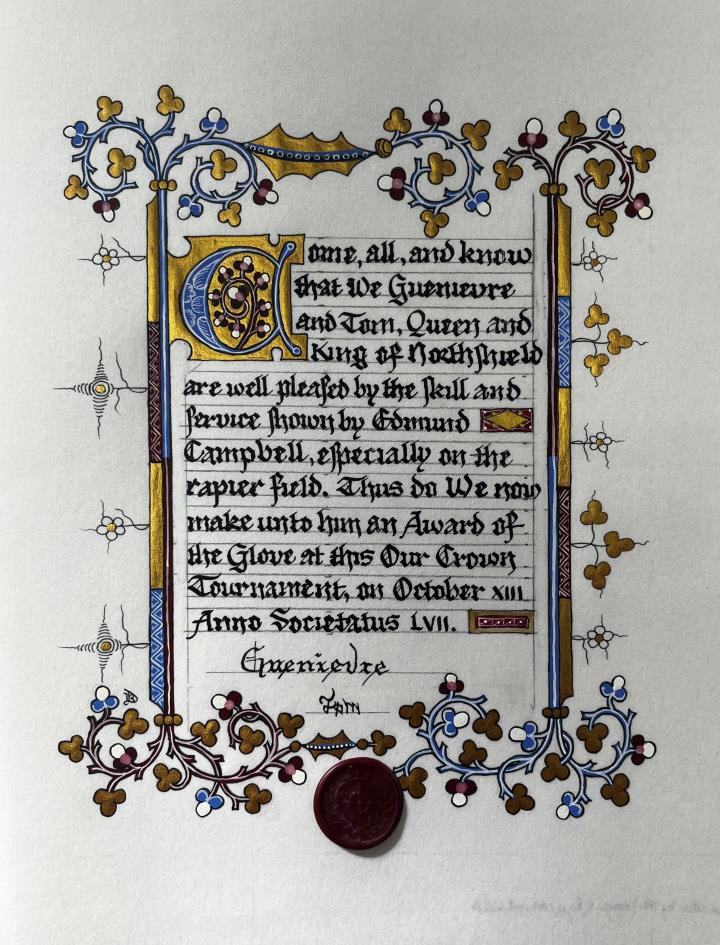 Come, all, and know
that We Guenievre
and Tom, Queen and
King of Northshield
are well pleaſed by the ſkill and
ſervice ſhown by Edmund
Campbell, eſpecially on the
rapier field. Thus do We now
make unto him an Award of
the Glove at this Our Crown
Tournament, on October xiii
Anno Societatus LVII.
Guenievre
Tom